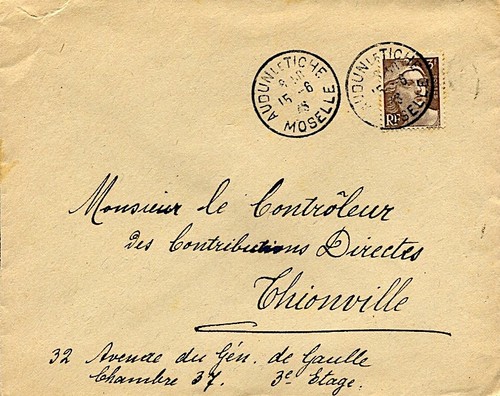 AUDUN LE TICHE
8 H
15-6
46
MOSELLE
AUDUN LE TICHE
15-6
MOSELLE
3F
RF
Monsieur le Contrôleur
des Contributions Directes
Thionville
32 Avenue du Gén. de Gaulle
Chambre 37. 3e Etage.